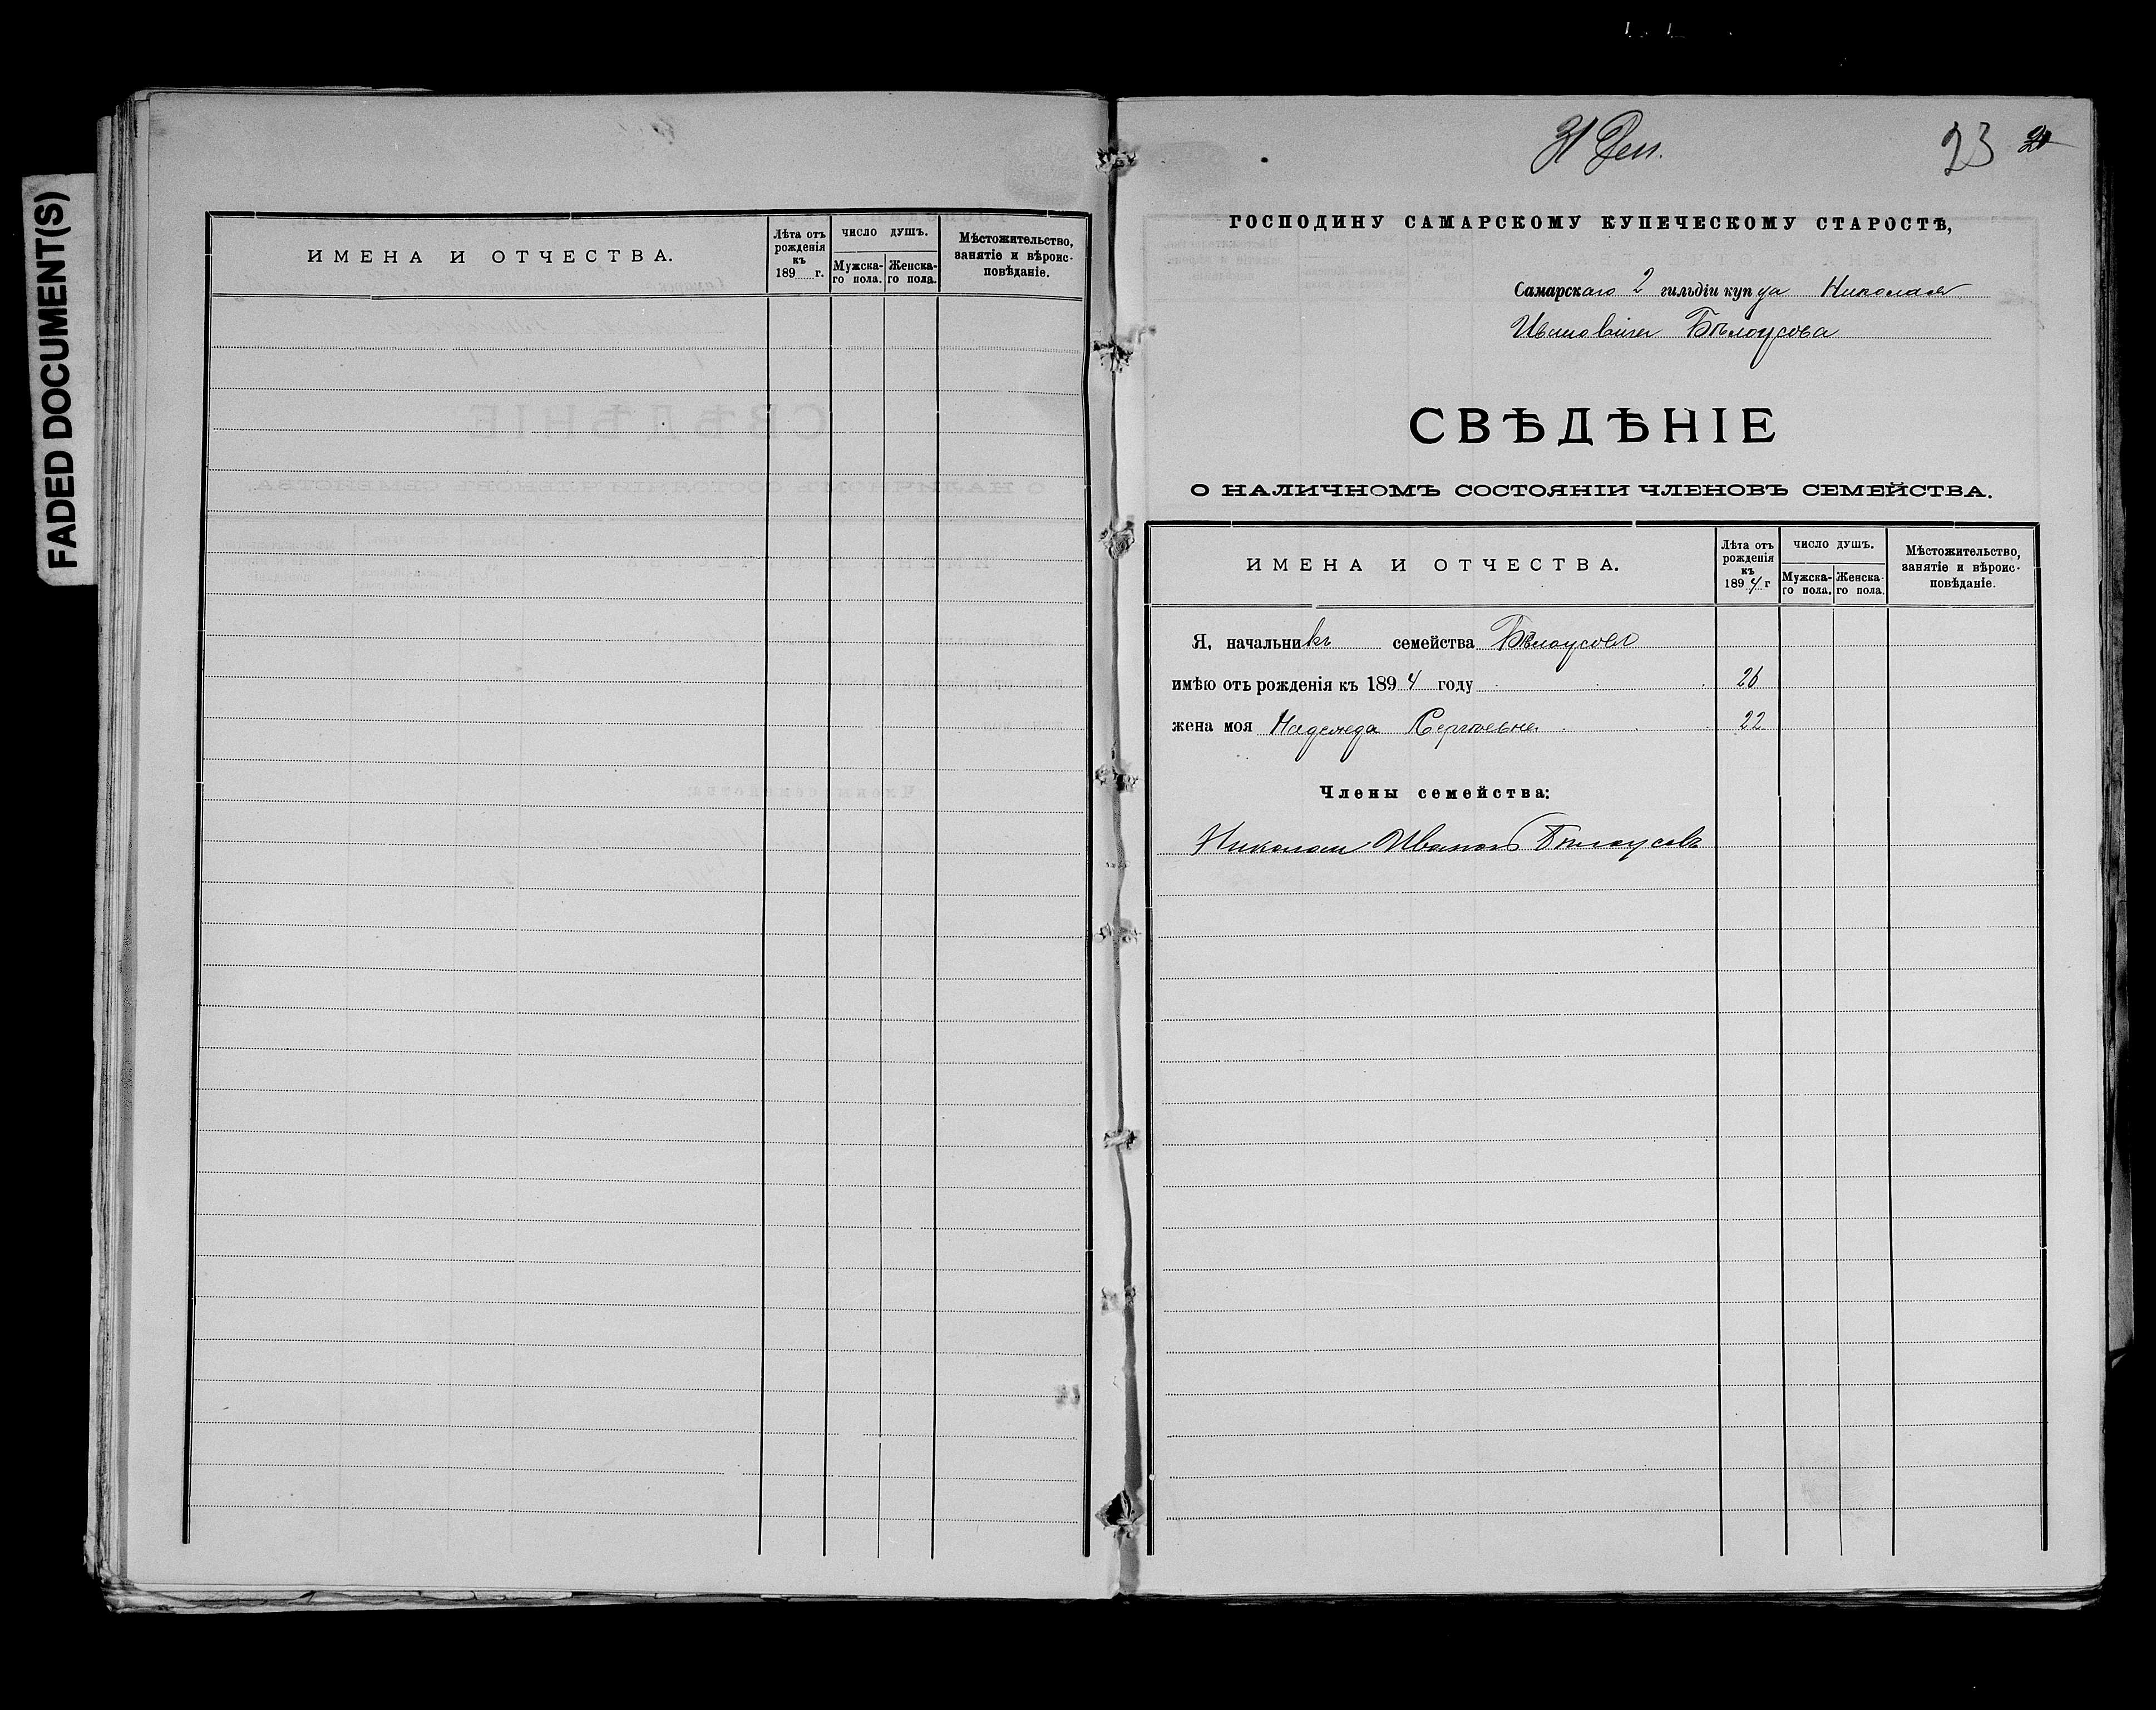 FADED DOCUMENT(S)
ИМЕНА И ОТЧЕСТВА.
Лѣта отъ рожденія къ 189 г.
ЧИСЛО ДУШЪ.
Мужска-го пола.
Женска-го пола.
Мѣстожительство, занятіе и вѣроис-повѣданіе.
31 Дек.
23 21
ГОСПОДИНУ САМАРСКОМУ КУПЕЧЕСКОМУ СТАРОСТѢ,
Самарскаго 2 гильдіи купца Николая
Ивановича Бѣлоусова
СВѢДѢНІЕ
О НАЛИЧНОМЪ СОСТОЯНІИ ЧЛЕНОВЪ СЕМЕЙСТВА.
ИМЕНА И ОТЧЕСТВА.
Лѣта отъ рожденія къ 1894 г
ЧИСЛО ДУШЪ.
Мужска-го пола.
Женска-го пола.
Мѣстожительство, занятіе и вѣроис-повѣданіе.
Я, начальникъ семейства Бѣлоусовъ
имѣю отъ рожденія къ 1894 году 26
жена моя Надежда Сергѣевна 22
Члены семейства:
Николай Ивановъ Бѣлоусовъ